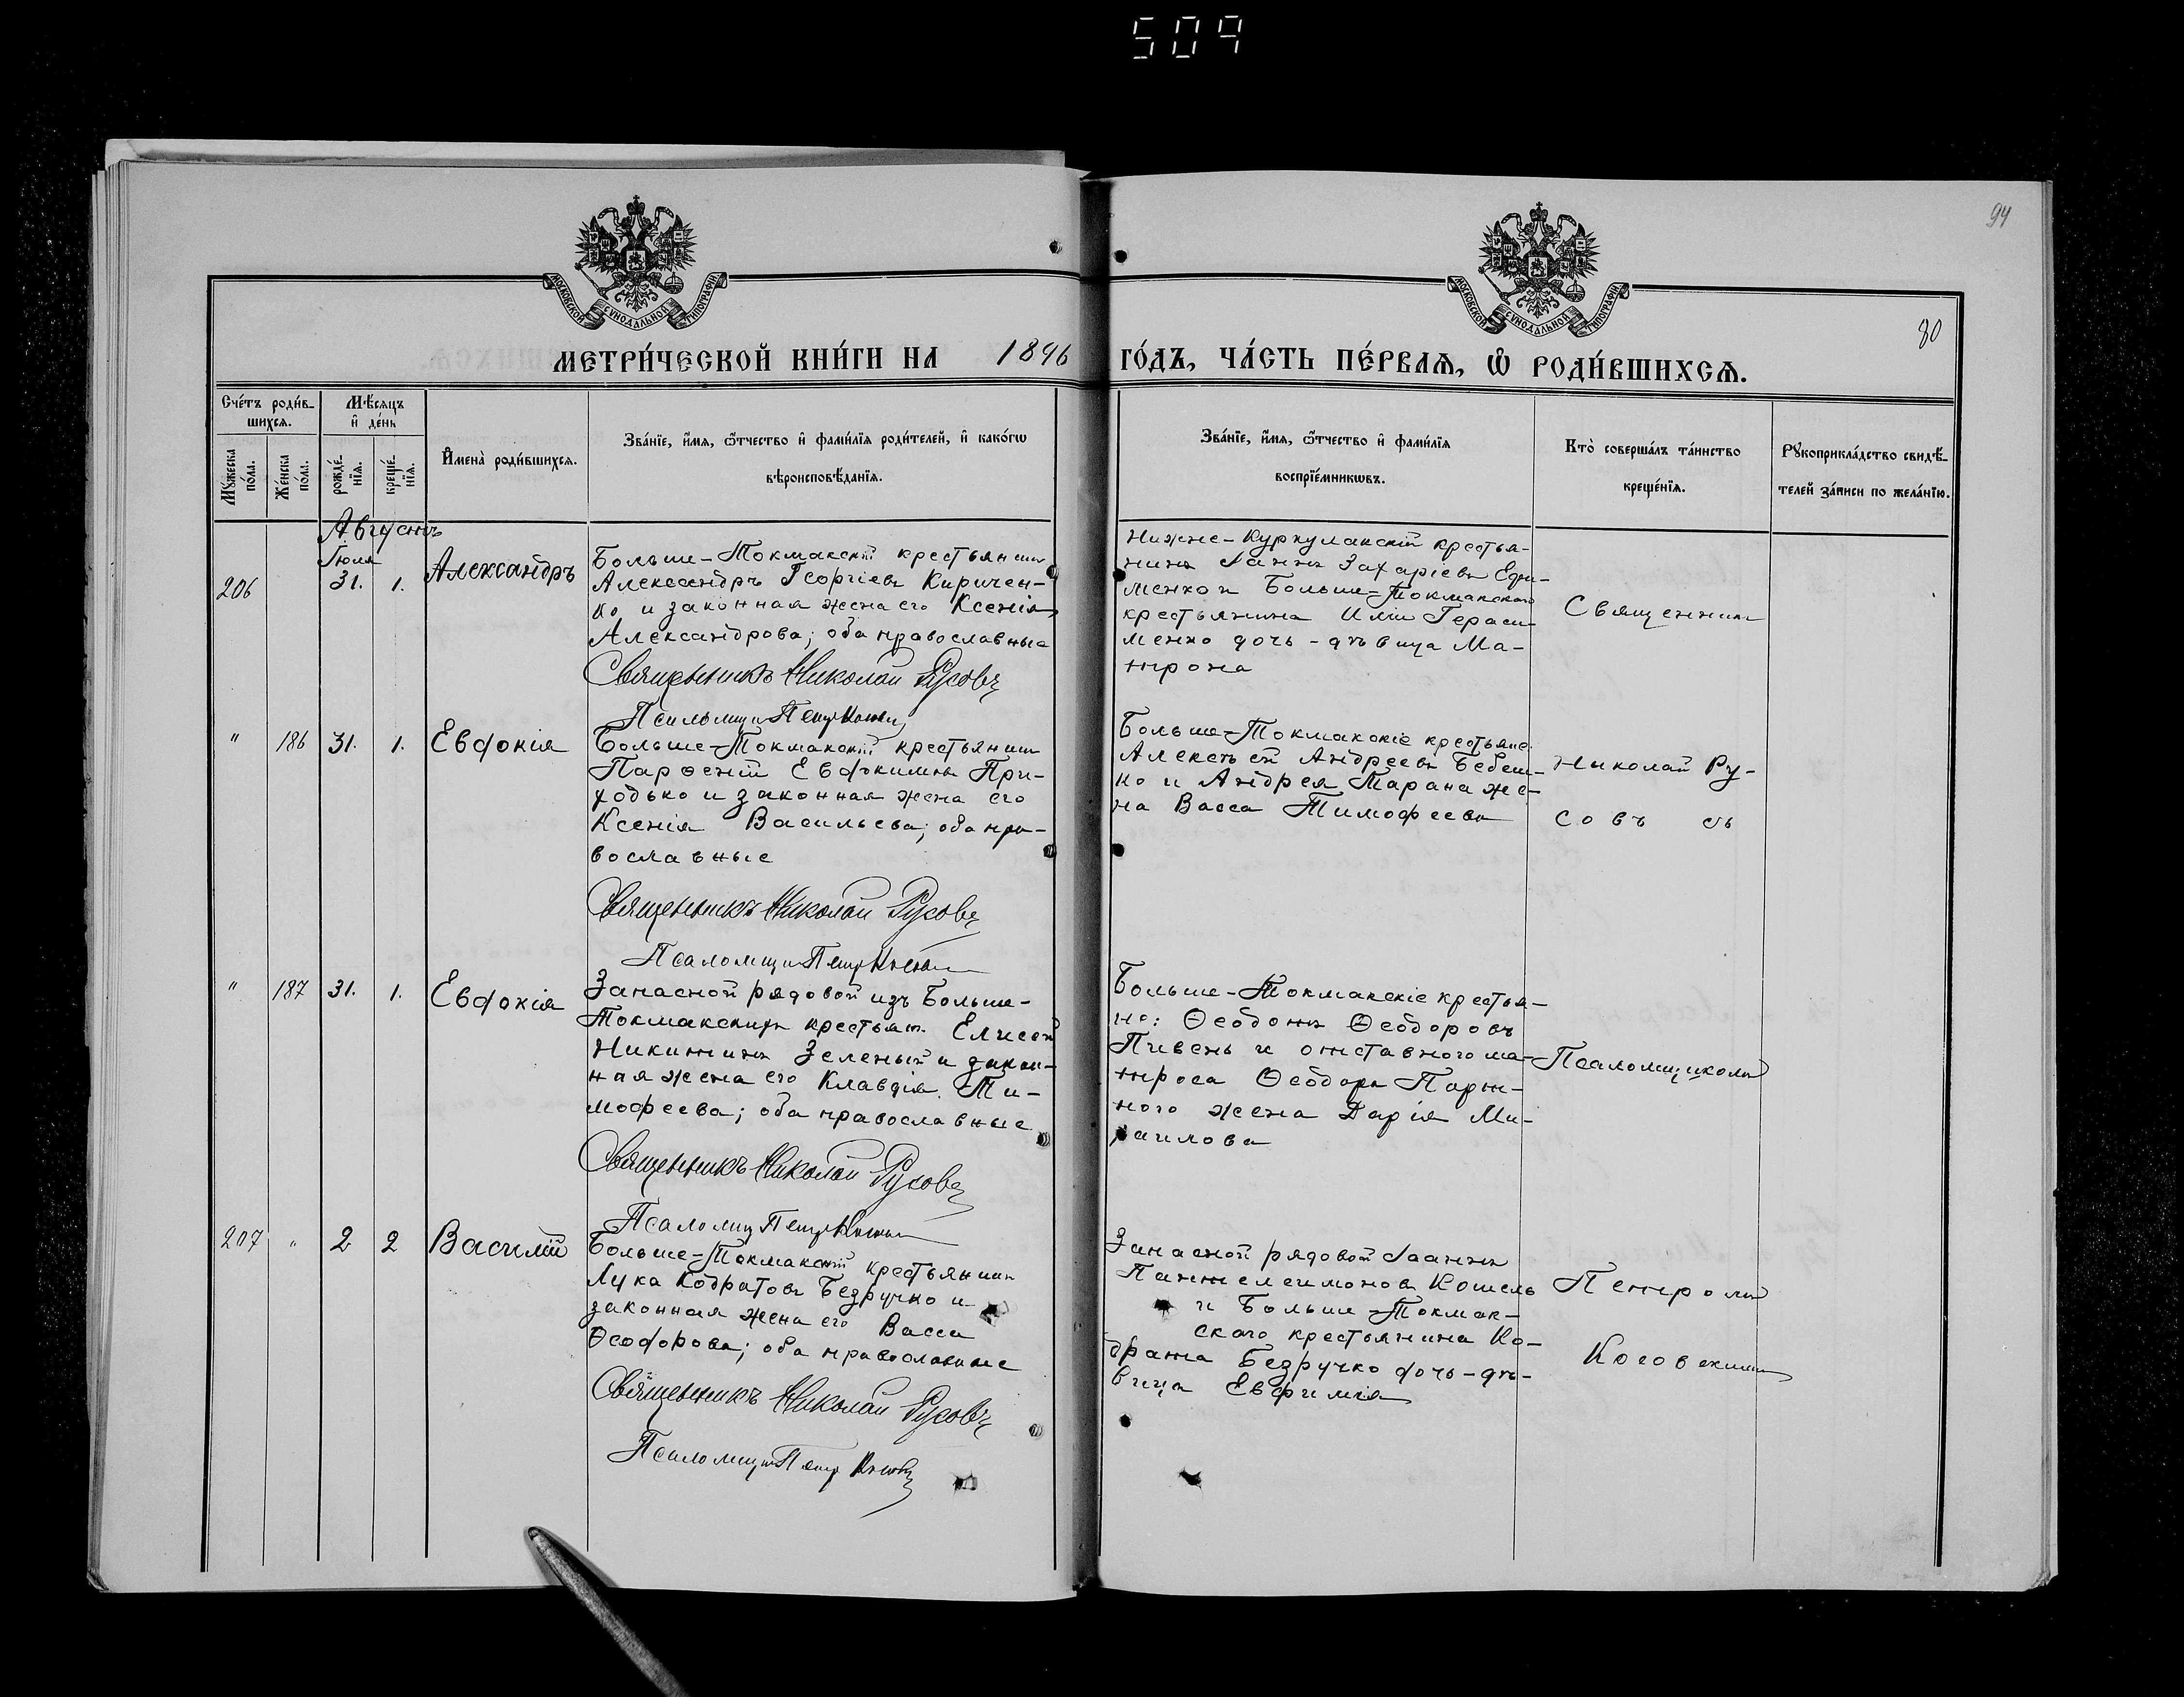 509
94
МОСКОВСКОЙ СѴНОДАЛЬНОЙ ТИПОГРАФІИ
МОСКОВСКОЙ СѴНОДАЛЬНОЙ ТИПОГРАФІИ
80
МЕТРИ́ЧЕСКОЙ КНИ́ГИ НА 1896 ГО́ДЪ, ЧА́СТЬ ПЕ́РВАѦ, Ѡ҆ РОДИ́ВШИХСѦ.
Сче́тъ роди́в-
шихсѧ.
Мѣ́сѧцъ
и҆ де́нь
Мꙋ́жеска
по́ла.
Же́нска
по́ла.
рожде́-
нїѧ.
креще́-
нїѧ.
И҆мена̀ роди́вшихсѧ.
Зва́нїе, и҆́мѧ, ѻ҆́тчество и҆ фами́лїѧ роди́телей, и҆ како́гѡ
вѣроисповѣ́данїѧ.
Зва́нїе, и҆́мѧ, ѻ҆́тчество и҆ фами́лїѧ
воспрїе́мникѡвъ.
Кто̀ соверша́лъ та́инство
креще́нїѧ.
Рꙋкоприкла́дство свидѣ́-
телей за́писи по жела́нїю.
Августъ
Іюля
206 31. 1. Александръ
Больше-Токмакскій крестьянинъ
Александръ Георгіевъ Киричен-
ко и законная жена его Ксенія
Александрова; оба православные
Священникъ Николай Русовъ
Псаломщ. Петръ
Нижне-Куркулакскій крестья-
нинъ Іаннъ Захаріевъ
менко и Больше-Токмакского
крестьянина Иліи Гераси-
менко дочь-дѣвица Ма-
трона
Священникъ
" 186 31. 1. Евдокія
Больше-Токмакскій крестьянинъ
Парѳеній Евдокимовъ При-
ходько и законная жена его
Ксенія Васильева; оба пра-
вославные
Священникъ Николай Русовъ
Псаломщ. Петръ
Больше-Токмакскіе крестьяне:
Алексѣй Андреевъ Бебеш-
ко и Андрея Тарана же-
на Васса Тимофеева
Николай Ру-
совъ съ
" 187 31. 1. Евдокія
Запасной рядовой изъ Больше-
Токмакскихъ крестьянъ Елисей
Никитинъ Зеленый и закон-
ная жена его Клавдія Ти-
мофеева; оба православные
Священникъ Николай Русовъ
Псаломщ. Петръ
Больше-Токмакскіе крестья-
не: Ѳеодоръ Ѳеодоровъ
Пивень и отставного ма-
троса Ѳеодора Порт-
ного жена Дарія Ми-
хаилова
Псаломщикомъ
207 " 2 2 Василій
Больше-Токмакскій крестьянинъ
Лука Кодратовъ Безручко и
законная жена его Васса
Ѳеодорова; оба православные
Священникъ Николай Русовъ
Псаломщ. Петръ
Запасной рядовой Іаннъ
Пантелеимоновъ Кошель
и Больше-Токмак-
ского крестьянина Ко-
драта Безручко дочь-дѣ-
вица Евфимія
Петромъ